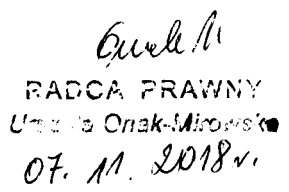 RADCA PRAWNY
Urszula Onak-Mirowska
07. 11. 2018 r.